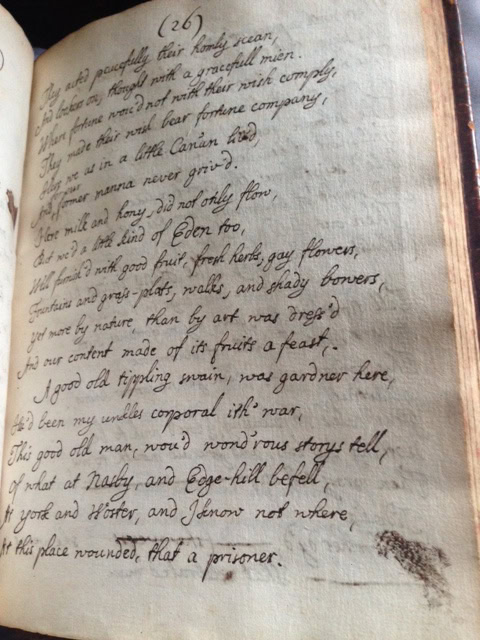 (26)
They acted peacefully their homly scean,
And lookers on, thought with a gracefull mien.
When fortune wou'd not with their wish comply,
They made their wish bear fortune company,
Thus we as in a little Canan liv'd,
for our former manna never griv'd.
Here milk and hony, did not only flow,
But we'd a little kind of Eden too,
Well furnish'd with good fruit, fresh herbs, gay flowers,
Fountains and grass-plats, walks, and shady bowers,
yet more by nature, than by art was dress'd
And our content made, of its fruits a feast,.
A good old tippling swain, was gardner here,
He'd been my unkles corporal ith' war,
This good old man, wou'd wond'rous storys tell,
Of what at Nasby, and Edge-hill befell,
At york and Woster, and I know not where,
At this place wounded, that a prisoner.